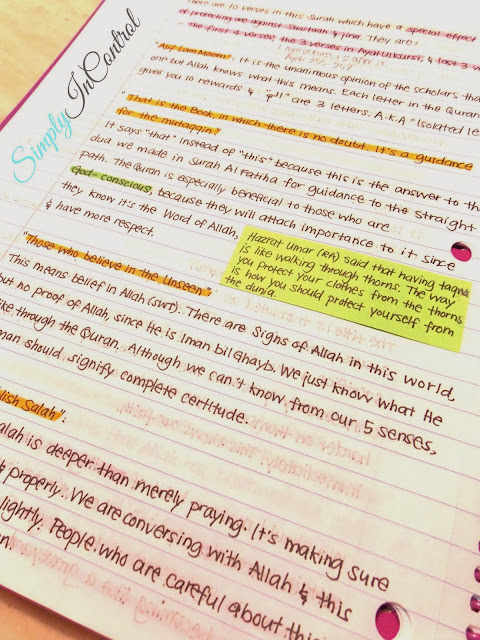 Simply InControl
There are 10 verses in this Surah which have a special effect
of protecting are against Shaitaan & jinn. They are:
- The first 4 verses, the 3 verses in Ayatulkursi, & last 3 v
Ayatul Kursi & 2 after it
Ayah 255-257
"Alif Lam Meem": It is the unanimous opinion of the scholars tha
one but Allah knows what this means. Each letter in the Quran
gives you 10 rewards & are 3 letters. A.K.A "Isolated le
"That is the Book, in which there is no doubt. It's a guidance
for the mutaqqin."
It says "that" instead of "this" because this is the answer to th
dua we made in Surah Al Fatiha for guidance to the straight
path. The Quran is especially beneficial to those who are
God-conscious, because they will attach importance to it since
they know it's the Word of Allah,
& have more respect.
Hazrat Umar (RA) said that having taqwa
is like walking through thorns. The way
you protect your clothes from the thorns
is how you should protect yourself from
the dunia.
"Those who believe in the Unseen":
This means belief in Allah (swt). There are signs of Allah in this world,
but no proof of Allah, since He is Iman bil Ghayb. We just know what He
ike through the Quran. Although we can't know, from our 5 senses,
man should signify complete certitude.
lish Salah":
alah is deeper than merely praying. It's making sure
& properly. We are conversing with Allah & this
lightly. People who are careful about this
n.